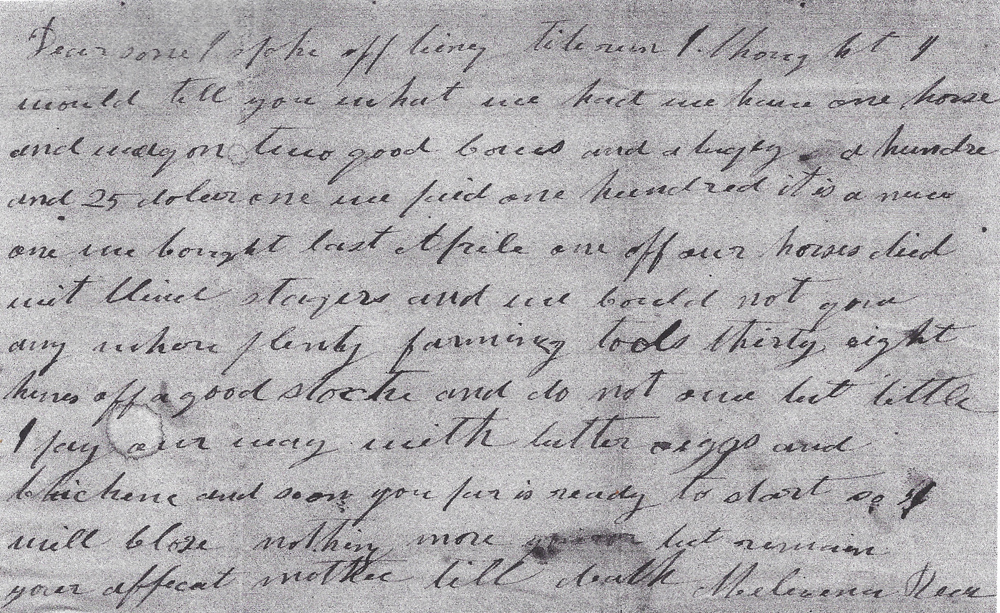 Dear sone I spoke off being I thought I
would till you what we had we have one horse
and wagon two good cows and a bugey a hundre
and 25 dolear one we paid one hundred it is a new
one we bought last Aprile one off our horses died
wit blind stagers and we could not gow
any where plenty farming tools thirty eight
hens off a good stocke and do not owe but little
I pay our way with butter eggs and
chickens and soon you pa is ready to start so I
will close nothing more but remain
your affecat mother till death